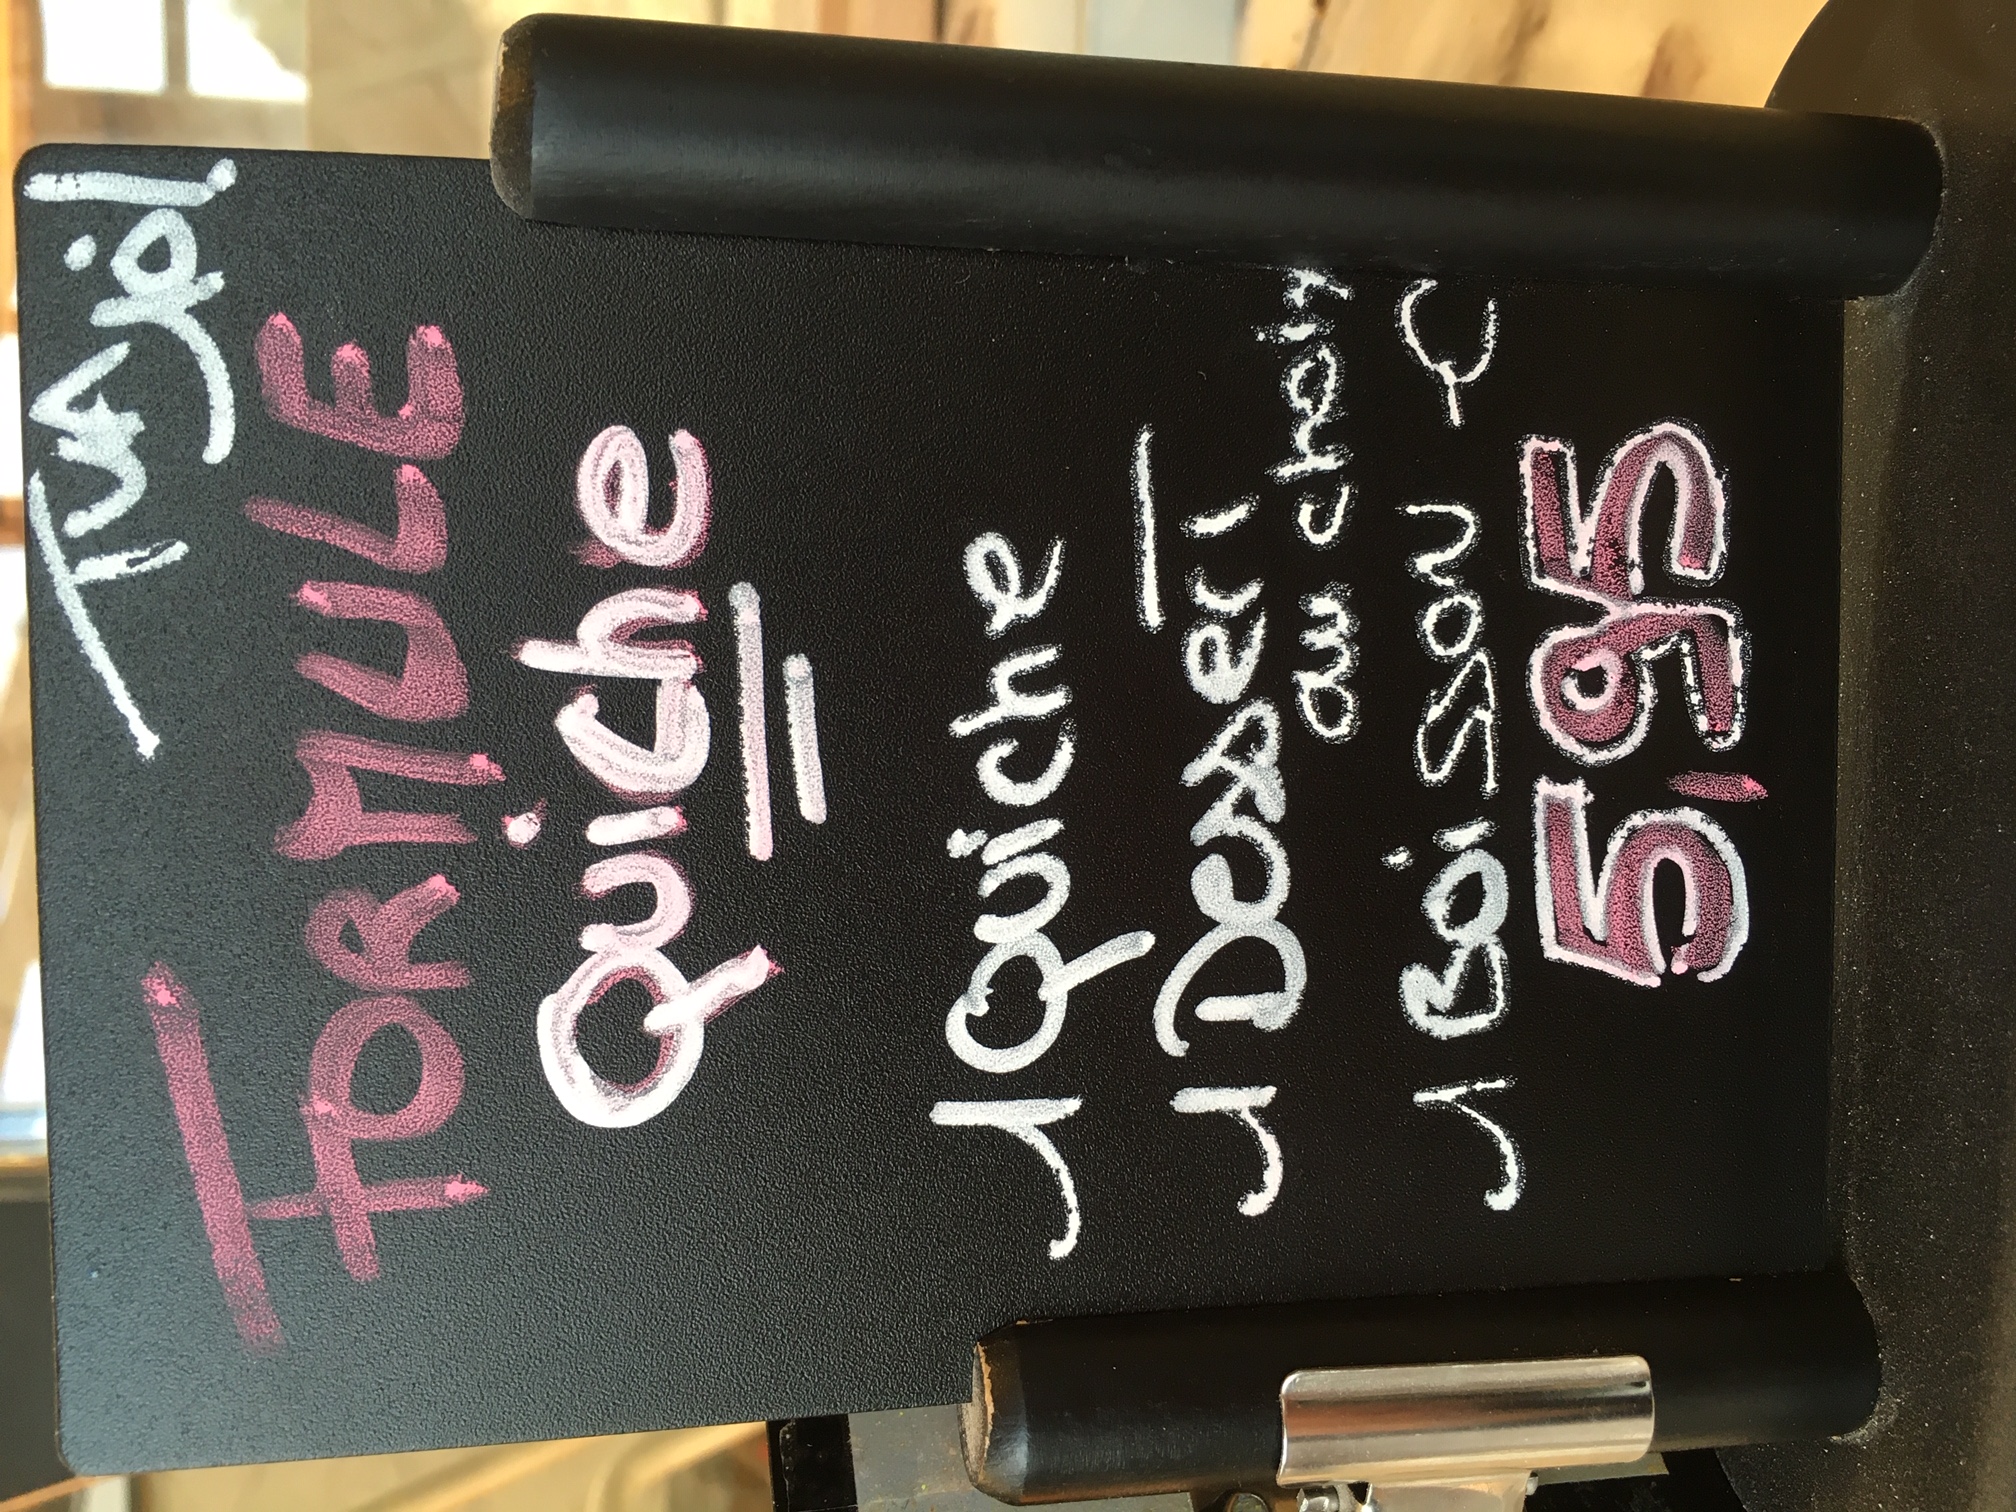 FORMULE
Quiche
1 Quiche
1 Dessert
au choix
1 Boisson
5,95